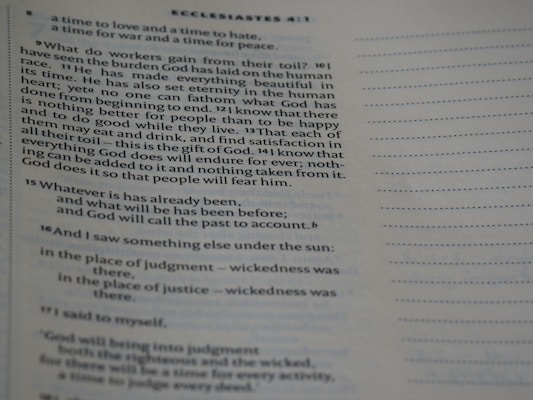 ECCLESIASTES 4:1
8 a time to love and a time to hate,
a time for war and a time for peace.
9 What do workers gain from their toil? 10 I
have seen the burden God has laid on the human
race. 11 He has made everything beautiful in
its time. He has also set eternity in the human
heart; yet a no one can fathom what God has
done from beginning to end. 12 I know that there
is nothing better for people than to be happy
and to do good while they live. 13 That each of
them may eat and drink, and find satisfaction in
all their toil – this is the gift of God. 14 I know that
everything God does will endure for ever; noth-
ing can be added to it and nothing taken from it.
God does it so that people will fear him.
15 Whatever is has already been,
and what will be has been before;
and God will call the past to account. b
16 And I saw something else under the sun:
in the place of judgment – wickedness was
there,
in the place of justice – wickedness was
there.
17 I said to myself,
'God will bring into judgment
both the righteous and the wicked,
for there will be a time for every activity,
a time to judge every deed.'